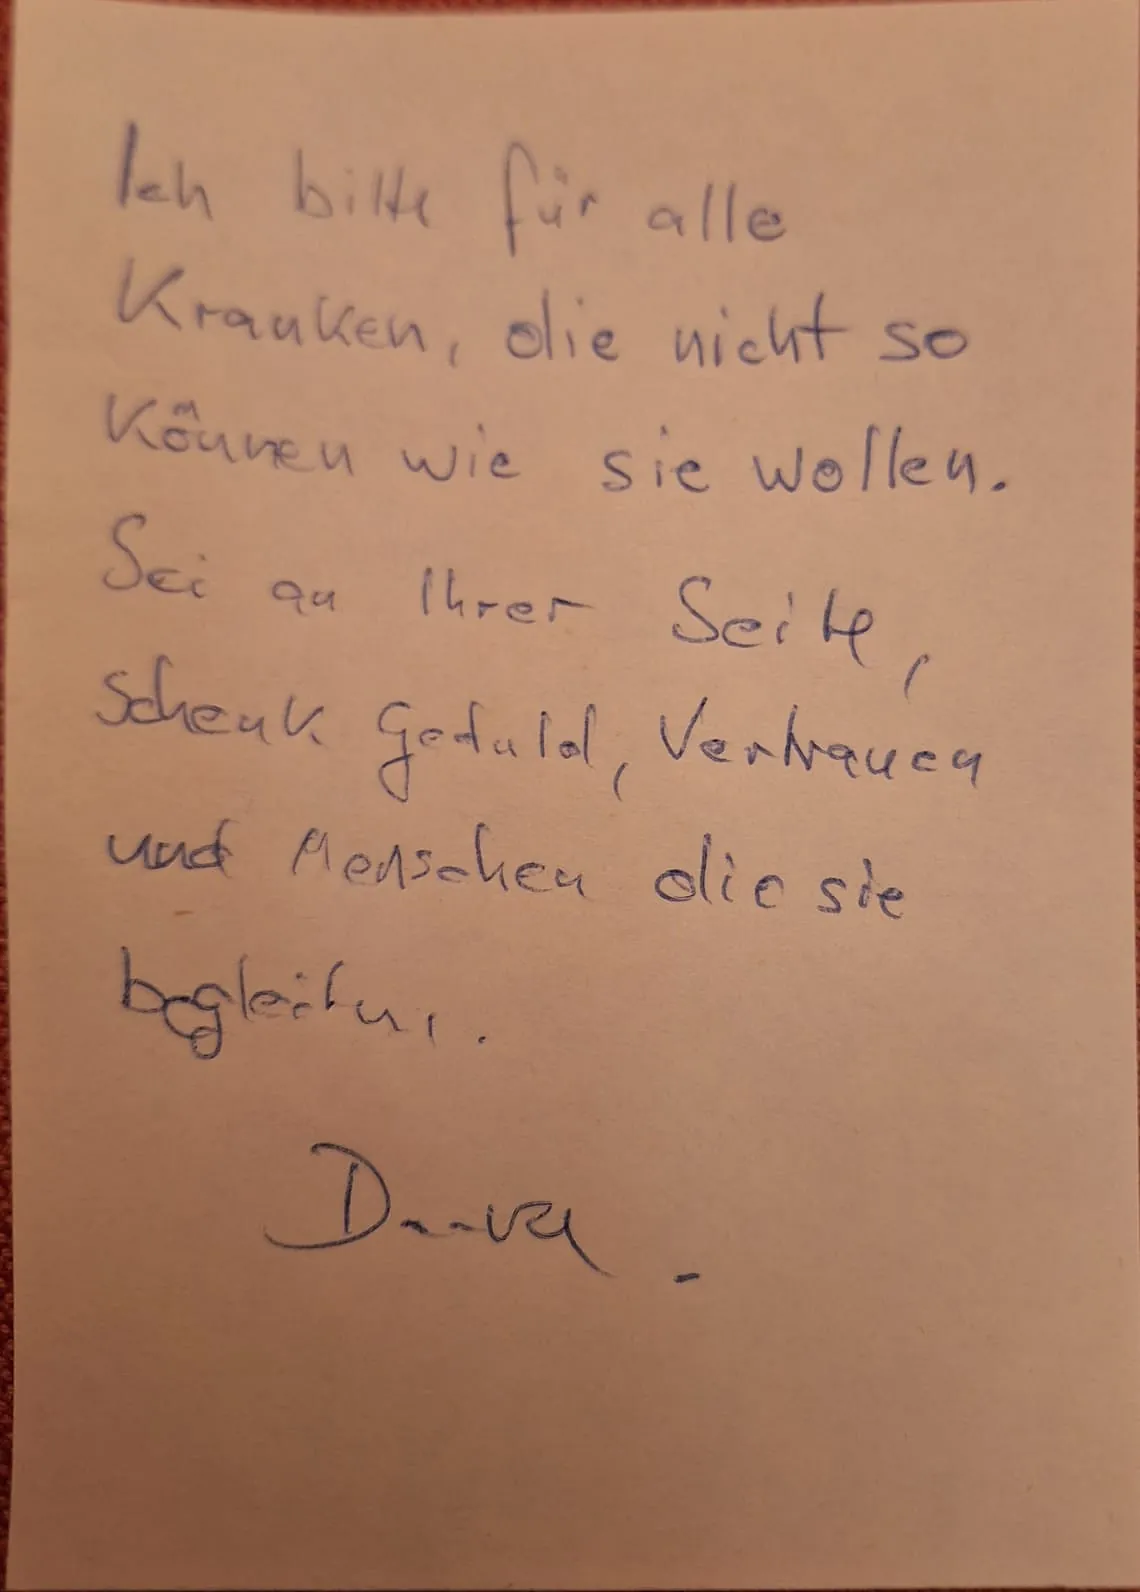 Ich bitte für alle
Kranken, die nicht so
können wie sie wollen.
Sei an Ihrer Seite,
schenk Geduld, Vertrauen
und Menschen die sie
begleiten.
Danke.